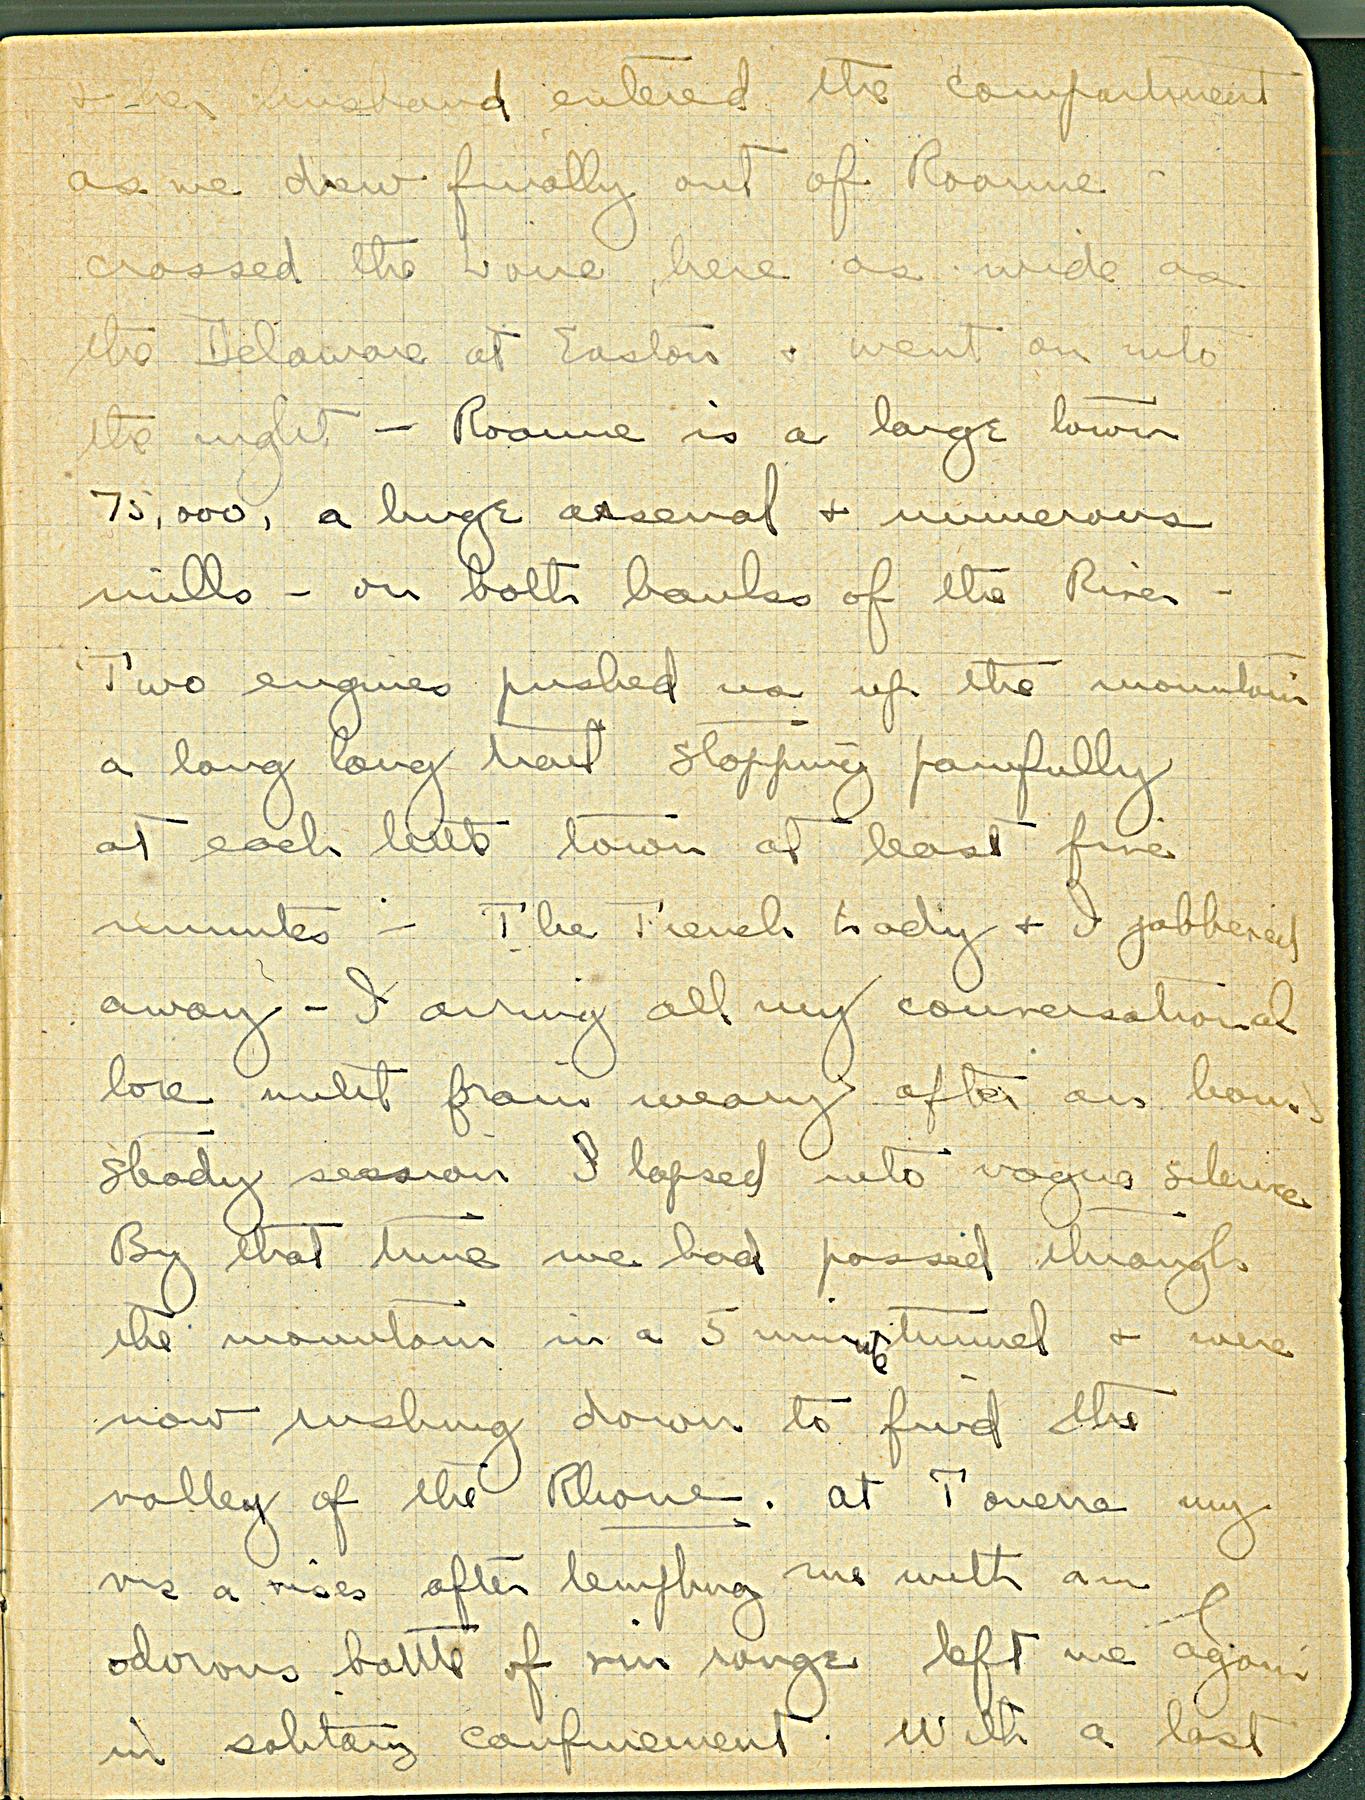 & her husband entered the compartment
as we drew finally out of Roanne -
crossed the Loire, here as wide as
the Delaware at Easton & went on into
the night - Roanne is a large town
75,000, a huge arsenal & numerous
mills - on both banks of the River -
Two engines pushed us up the mountain
a long long haul stopping painfully
at each little town at least five
minutes - The French Lady & I jabbered
away - I airing all my conversational
lore until brain weary after an hour's
steady session I lapsed into vague silence
By that time we had passed through
the mountain in a 5 minute tunnel & were
now rushing down to find the
valley of the Rhone. at my
vis a vises after tempting me with an
odorous bottle of vin rouge left me again
in solitary confinement. With a last